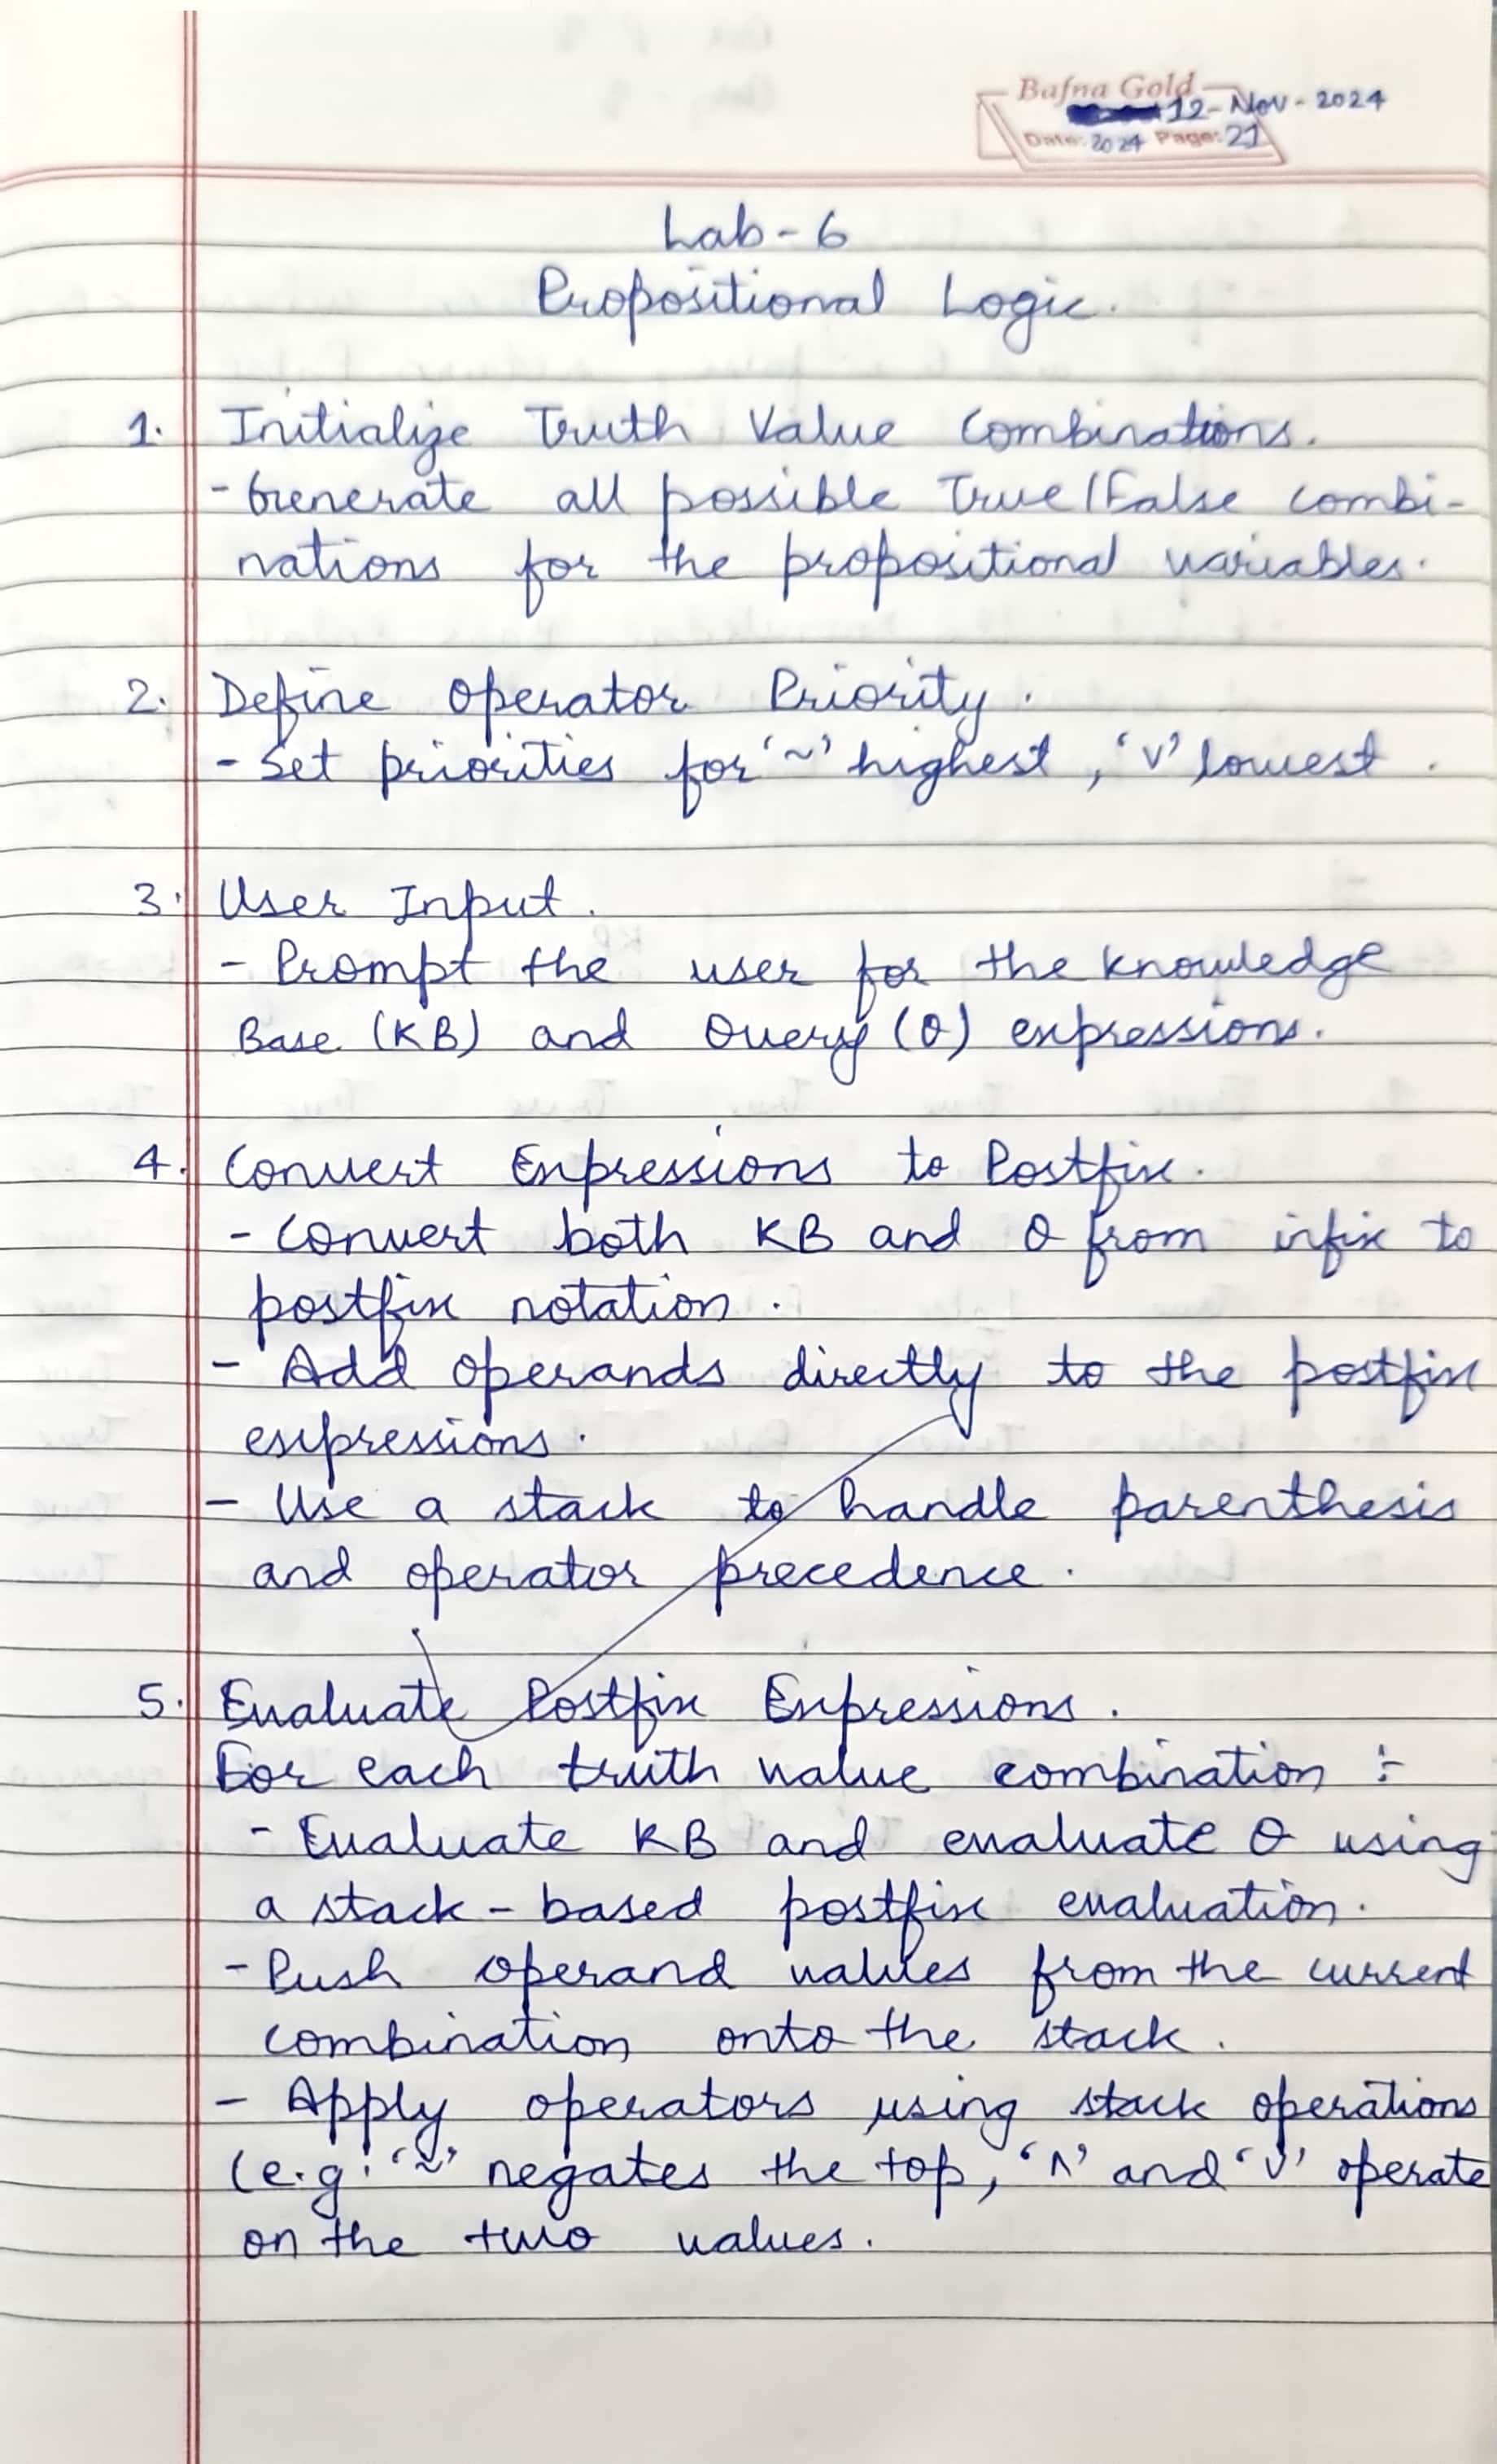 Bafna Gold
12-Nov-2024
Date: 2024 Page: 21
Lab-6
Propositional Logic.
1. Initialize Truth Value Combinations.
- Generate all possible True/False combi-
nations for the propositional variables.
2. Define Operator Priority.
- Set priorities for '~' highest, 'v' lowest.
3. User Input.
- Prompt the user for the knowledge
Base (KB) and Query (Q) expressions.
4. Convert Expressions to Postfix.
- Convert both KB and Q from infix to
postfix notation.
- Add operands directly to the postfix
expressions.
- Use a stack to handle parenthesis
and operator precedence.
5. Evaluate Postfix Expressions.
For each truth value combination :-
- Evaluate KB and evaluate Q using
a stack-based postfix evaluation.
- Push operand values from the current
combination onto the stack.
- Apply operators using stack operations
(e.g: '~' negates the top, '∧' and 'v' operate
on the two values.